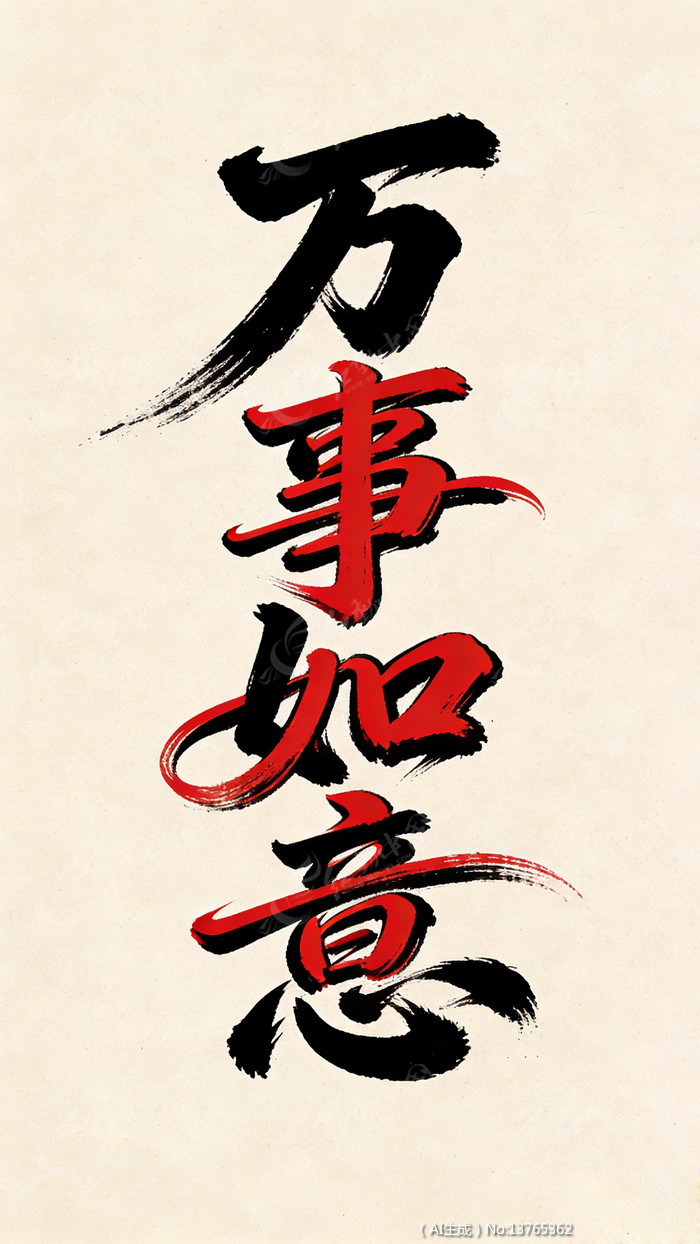 万事如意
（AI生成）No:13765362